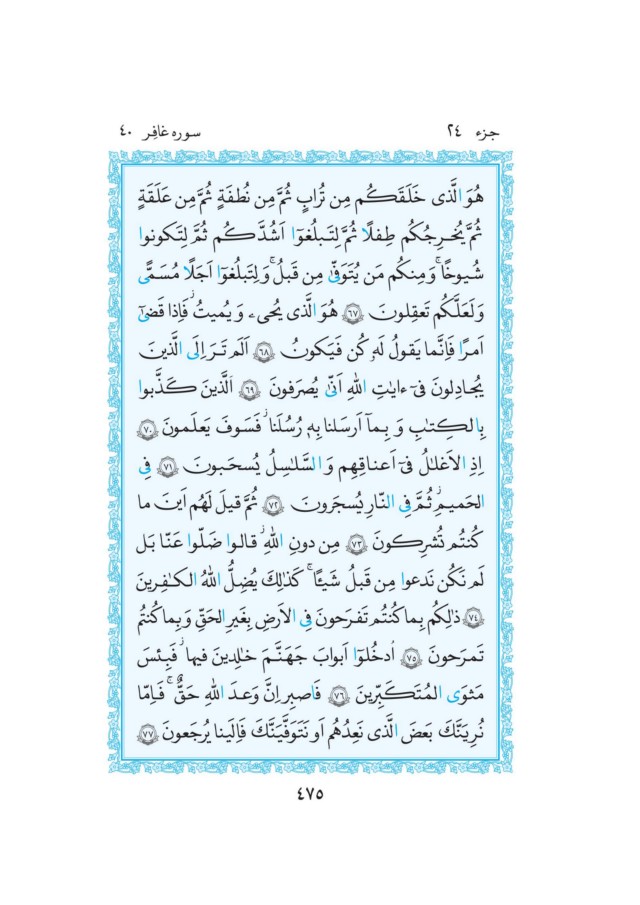 جزء ٢٤
سوره غافِر ٤٠
هُوَ الَّذی خَلَقَكُم مِن تُرابٍ ثُمَّ مِن نُطفَةٍ ثُمَّ مِن عَلَقَةٍ
ثُمَّ یُخرِجُكُم طِفلًا ثُمَّ لِتَبلُغوٓا اَشُدَّكُم ثُمَّ لِتَكونوا
شُیوخًا ۚ وَ مِنكُم مَن یُتَوَفّیٰ مِن قَبلُ ۚ وَ لِتَبلُغوٓا اَجَلًا مُسَمًّی
وَ لَعَلَّكُم تَعقِلونَ ﴿٦٧﴾ هُوَ الَّذی یُحیۦ وَ یُمیتُ ۖ فَاِذا قَضیٰٓ
اَمرًا فَاِنَّما یَقولُ لَهٗ كُن فَیَكونُ ﴿٦٨﴾ اَلَم تَرَ اِلَی الَّذینَ
یُجادِلونَ فیٓ ءایٰتِ اللهِ اَنّیٰ یُصرَفونَ ﴿٦٩﴾ اَلَّذینَ كَذَّبوا
بِالكِتٰبِ وَ بِمآ اَرسَلنا بِهٖ رُسُلَنا ۖ فَسَوفَ یَعلَمونَ ﴿٧٠﴾
اِذِ الاَغلٰلُ فیٓ اَعناقِهِم وَ السَّلٰسِلُ یُسحَبونَ ﴿٧١﴾ فِی
الحَمیمِ ثُمَّ فِی النّارِ یُسجَرونَ ﴿٧٢﴾ ثُمَّ قیلَ لَهُم اَینَ ما
كُنتُم تُشرِكونَ ﴿٧٣﴾ مِن دونِ اللهِ ۖ قالوا ضَلّوا عَنّا بَل
لَم نَكُن نَدعوا مِن قَبلُ شَیـًٔا ۚ كَذٰلِكَ یُضِلُّ اللهُ الكٰفِرینَ
﴿٧٤﴾ ذٰلِكُم بِما كُنتُم تَفرَحونَ فِی الاَرضِ بِغَیرِ الحَقِّ وَ بِما كُنتُم
تَمرَحونَ ﴿٧٥﴾ اُدخُلوٓا اَبوابَ جَهَنَّمَ خٰلِدینَ فیها ۖ فَبِئسَ
مَثوَی المُتَكَبِّرینَ ﴿٧٦﴾ فَاصبِر اِنَّ وَعدَ اللهِ حَقٌّ ۚ فَاِمّا
نُرِیَنَّكَ بَعضَ الَّذی نَعِدُهُم اَو نَتَوَفَّیَنَّكَ فَاِلَینا یُرجَعونَ ﴿٧٧﴾
٤٧٥